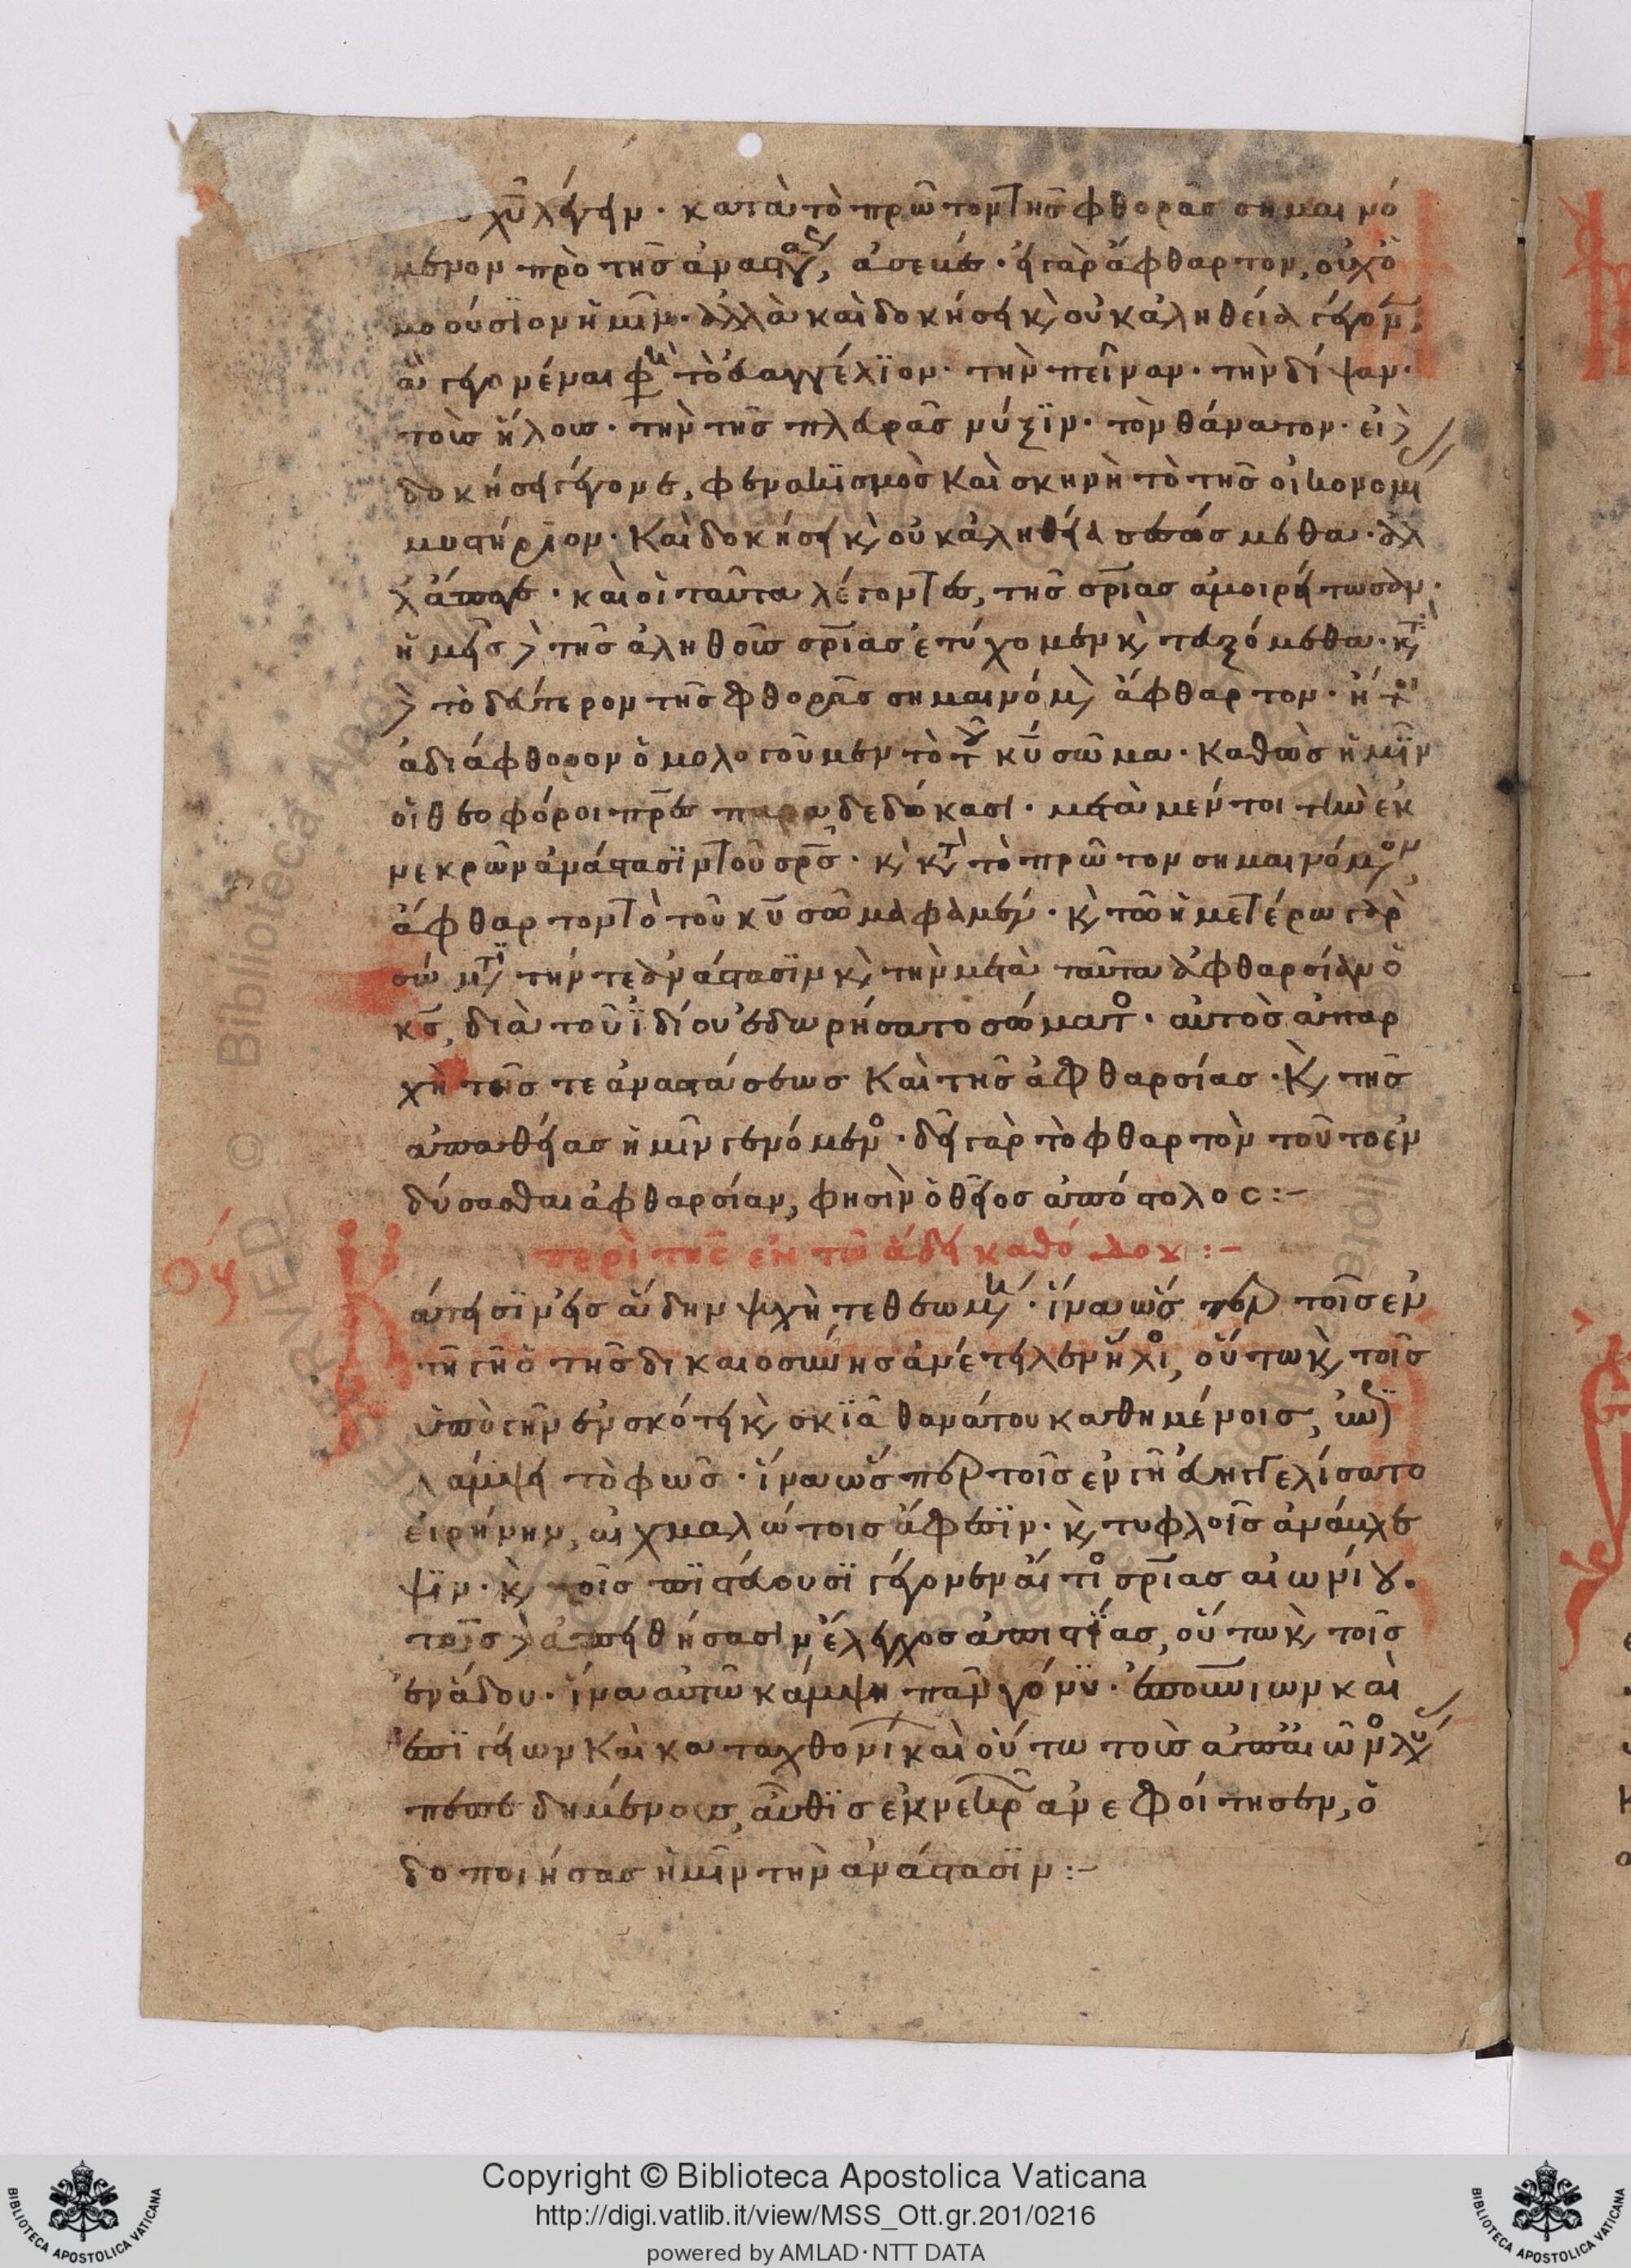 χῡ λέγειν· κατὰ τὸ πρῶτον τῆς φθορᾶς σημαινό
μενον πρὸ τῆς ἀναστάσεως, ἀσεβές· εἰ γὰρ ἄφθαρτον, οὐχ ὁ
μοούσϊον ἡμῖν· ἀλλὰ καὶ δοκήσει κ οὐκ ἀληθείᾳ γέγονεν,
ἃ γεγονέναι φησὶ τὸ εὐαγγέλϊον· τὴν πεῖναν· τὴν δίψαν·
τοὺς ἥλους· τὴν τῆς πλευρᾶς νύξϊν· τὸν θάνατον· εἰ δὲ
δοκήσει γέγονε, φενακϊσμὸς καὶ σκηνὴ τὸ τῆς οἰκονομι
μυστήριον· καὶ δοκήσει κ οὐκ ἀληθείᾳ σεσώσμεθα· ἀλλ
χ ἄπαγε· καὶ οἱ ταῦτα λέγοντες, τῆς σρ̄ιας ἀμοιρείτωσαν·
ἡμεῖς δὲ τῆς ἀληθοῦς σρ̄ιας ἐτύχομεν κ τευξόμεθα· κατὰ
δὲ τὸ δεύτερον τῆς φθορᾶς σημαινόμενον ἄφθαρτον· ἤτοι
ἀδιάφθορον ὁμολογοῦμεν τὸ τοῦ κῡ σῶμα· καθὼς ἡμῖν
οἱ θεοφόροι πρ̄ες παραδεδώκασι· μετὰ μέντοι τὴν ἐκ
νεκρῶν ἀνάστασϊν τοῦ σρ̄ς· κ κατὰ τὸ πρῶτον σημαινόμενον,
ἄφθαρτον τὸ τοῦ κῡ σῶμά φαμεν· κ τῶ ἡμετέρω γὰρ
σώματι τήν τε ἀνάστασϊν κ τὴν μετὰ ταῦτα ἀφθαρσίαν ὁ
κς̄, διὰ τοῦ ϊδίου ἐδωρήσατο σώματος· αὐτὸς ἀπαρ
χὴ τῆς τε ἀναστάσεως καὶ τῆς ἀφθαρσίας· κ τῆς
ἀπαθείας ἡμῖν γενόμενος· δεῖ γὰρ τὸ φθαρτὸν τοῦτο ἐν
δύσασθαι ἀφθαρσίαν, φησὶν ὁ θεῖος ἀπόστολος:–
περὶ τῆς ἐν τῶ ἅδει καθόδου:–
Κάτεισϊν εἰς ἅδην ψυχὴ τεθεωμένη· ἵνα ὥσπερ τοῖς ἐν
τῆ γῆ ὁ τῆς δικαιοσύνης ἀνέτειλεν ἥλιος, οὕτω κ τοῖς
ὑπὸ γῆν ἐν σκότει κ σκϊᾶ θανάτου καθημένοις, ἐπϊ
λάμψει τὸ φῶς· ἵνα ὥσπερ τοῖς ἐν γῆ εὐηγγελίσατο
εἰρήνην, αἰχμαλώτοις ἄφεσϊν· κ τυφλοῖς ἀνάβλε
ψϊν· κ τοῖς πϊστεύουσϊ γέγονεν αἴτιος σρ̄ιας αἰωνίου.
τοῖς δὲ ἀπειθήσασιν ἔλεγχος ἀπιστΐας, οὕτω κ τοῖς
ἐν ἅδου· ἵνα αὐτῶ κάμψη πᾶν γόνϋ· ἐπουρανίων καὶ
ἐπϊγείων καὶ καταχθονί καὶ οὕτω τοὺς ἀπʼ αἰῶνος λύσας
πεπεδημένους, αὖθϊς ἐκ νεκρῶν ἀνεφοίτησεν, ὁ
δοποιήσας ἡμῖν τὴν ἀνάστασϊν:–
Copyright © Biblioteca Apostolica Vaticana
http://digi.vatlib.it/view/MSS_Ott.gr.201/0216
powered by AMLAD·NTT DATA
BIBLIOTECA APOSTOLICA VATICANA
BIBLIOTECA APOSTOLICA VATICANA